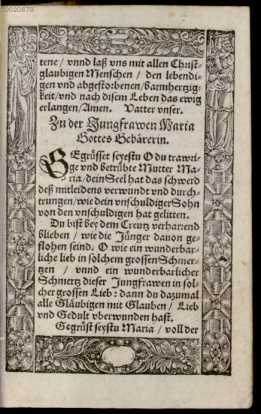 tene / vnnd laß vns mit allen Christ-
glaubigen Menschen / den lebendi-
gen vnd abgestorbenen / Barmhertzig-
keit / vnd nach disem Leben das ewig
erlangen / Amen. Vatter vnser.
Zu der Jungfrawen Maria
Gottes Gebärerin.
GEgrüsset seyestu O du trawri-
ge vnd betrübte Mutter Ma-
ria, dein Seel hat das schwerd
deß mitleidens verwundt vnd durch-
trungen / wie dein vnschuldiger Sohn
von den vnschuldigen hat gelitten.
Du bist bey dem Creutz verharrend
blieben / wie die Jünger dauon ge-
flohen seind. O wie ein wunderbar-
liche lieb in solchem grossen Schmer-
tzen / vnnd ein wunderbarlicher
Schmertz dieser Jungfrawen in sol-
cher grossen Lieb: dann du dazumal
alle Gläubigen mit Glauben / Lieb
vnd Gedult vberwunden hast.
Gegrüst seystu Maria / voll der